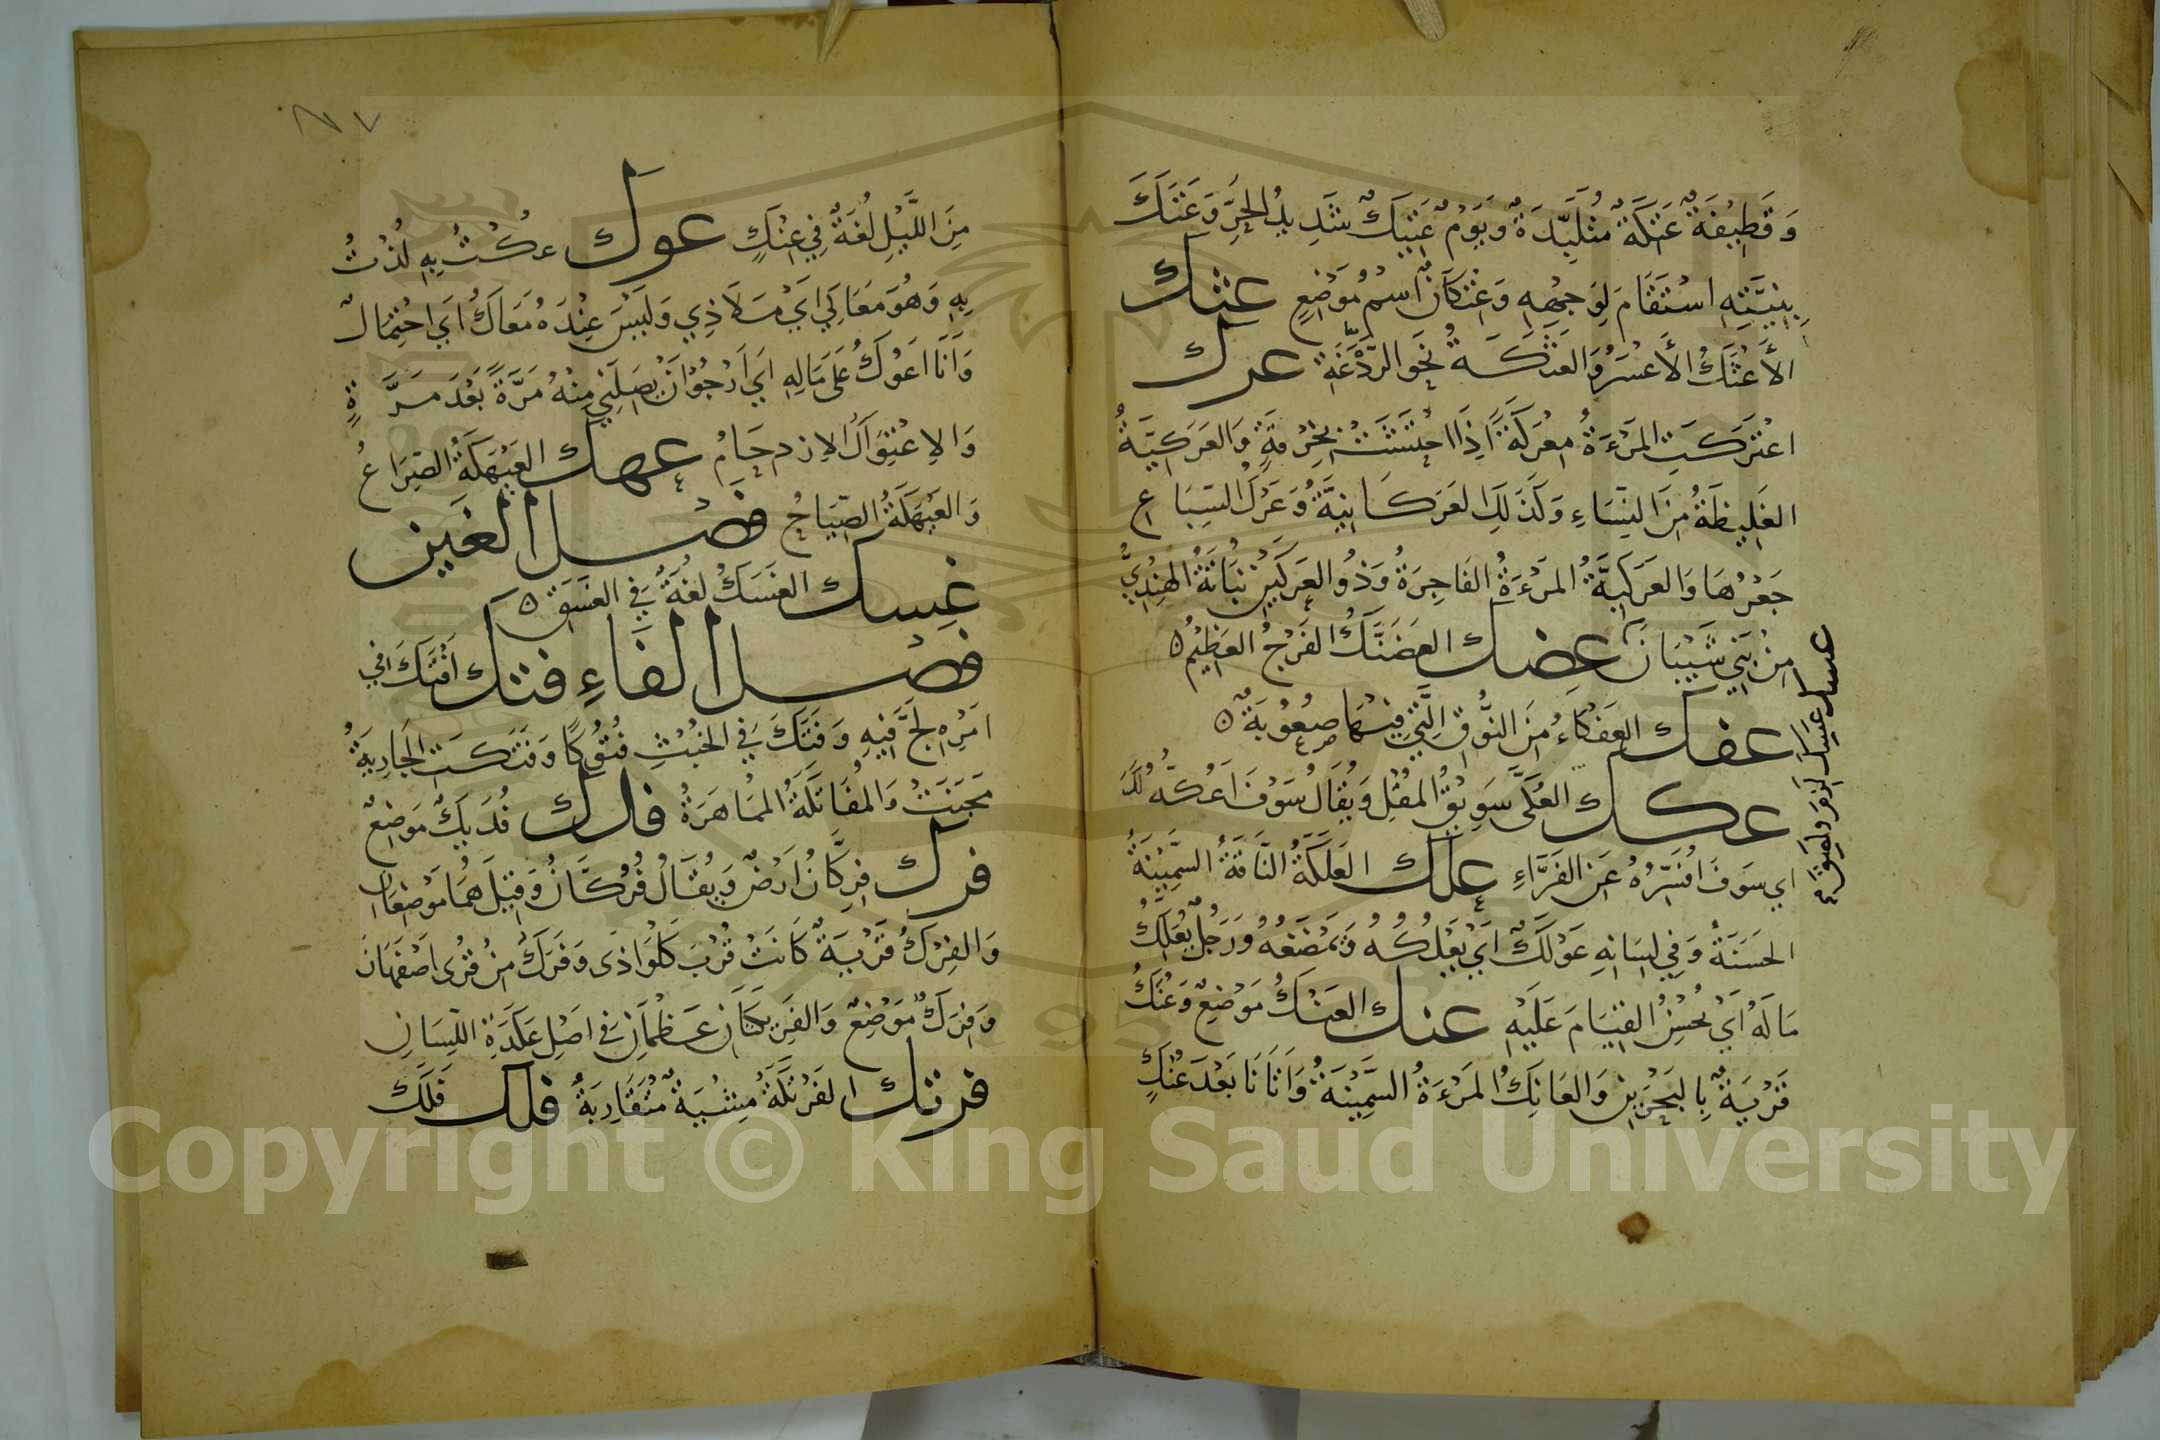 وَقَطِيْفَةٌ عَتِكَةٌ مُتَلَبِّدَةٌ وَيَوْمٌ عَتِيكٌ شَدِيدُ الحَرِّ وَعَتَكَ
بِنِيَّتِهِ اسْتَقَامَ لِوَجْهِهِ وَعَتْكَانُ اسْمُ مَوْضِعٍ عثك
الأَعْثَكُ الأَعْسَرُ وَالعَثَكَةُ نَحْوَ الرَّدْغَةِ عرك
اعْتَرَكَتِ المَرْءَةُ مِعْرَكَةً اِذَا احْتَشَتْ بِخِرْقَةٍ وَالعَرَكِيَّةُ
الغَلِيظَةُ مِنَ النِّسَاءِ وَكَذَلِكَ العَرَكَانِيَّةُ وَعَرْكُ السِّبَاعِ
جَعْرُهَا وَالعَرَكِيَّةُ المَرْءَةُ الفَاجِرَةُ وَذُو العَرْكَيْنِ نُبَاتَةُ الهِنْدِيُّ
مِنْ بَنِي شَيْبَانَ عضنك العَضَنَّكُ الفَرْجُ العَظِيْمُ
عفك العَفْكَاءُ مِنَ النُّوْقِ الَّتِي فِيْهَا صُعُوْبَةٌ
عكك العُكَّى سَوِيْقُ المُقْلِ وَيُقَالُ سَوْفَ اَعُكُّهُ لَكَ
اي سَوْفَ اُفَسِّرُهُ عَنِ الفَرَّاءِ علك العَلَكَةُ النَّاقَةُ السَّمِيْنَةُ
الحَسَنَةُ وَفِي لِسَانِهِ عَوْلَكٌ اَيْ يَعْلُكُهُ وَيَمْضَغُهُ وَرَجُلٌ يَعْلِكُ
مَالَهُ اَيْ يُحْسِنُ القِيَامَ عَلَيْهِ عنك العَنْكُ مَوْضِعٌ وَعُنَكُ
قَرْيَةٌ بِالبَحْرَيْنِ وَالعَانِكُ المَرْءَةُ السَّمِيْنَةُ وَاَتَانَا بَعْدَ عُنْكٍ
عسك عَسِكَ لَزِمَ وَلَصِقَ
٨٧
مِنَ اللَّيْلِ لُغَةٌ فِي عِنْكٍ عوك عُكْتُ بِهِ لُذْتُ
بِهِ وَهُوَ مَعَاكِي اَيْ مَلَاذِي وَلَيْسَ عِنْدَهُ مَعَاكٌ اَي احْتِمَالٌ
وَاَنَا اَعُوْكُ عَلَى مَالِهِ اَي اَرْجُوْ اَنْ يَصِلَنِي مِنْهُ مَرَّةً بَعْدَ مَرَّةٍ
وَالاِعْتِوَاكُ الاِزْدِحَامُ عهك العَيْهَكَةُ الصِّرَاعُ
وَالعَيْهَكَةُ الصِّيَاحُ فصل الغين
غسك الغَسَكُ لُغَةٌ فِي الغَسَقِ
فصل الفاء فتك اَفْتَكَ فِي
اَمْرِهِ لَجَّ فِيْهِ وَفَتَكَ فِي الخُبْثِ فُتُوْكًا وَفَتَكَتِ الجَارِيَةُ
مَجَنَتْ وَالمُفَاتَكَةُ المُمَاهَرَةُ فدك فُدَيْكٌ مَوْضِعٌ
فرك فِرِكَّانُ اَرْضٌ وَيُقَالُ فُرُكَّانُ وَقِيْلَ هُمَا مَوْضِعَانِ
وَالفِرْكُ قَرْيَةٌ كَانَتْ قُرْبَ كَلْوَاذَى وَفَرَكُ مِنْ قُرَى اَصْفَهَانَ
وَفِرَكٌ مَوْضِعٌ وَالفَرِيْكَتَانِ عَظْمَانِ فِي اَصْلِ عَكَدَةِ اللِّسَانِ
فرتك الفَرْتَكَةُ مِشْيَةٌ مُتَقَارِبَةٌ فلك فَلَكَ
Copyright © King Saud University